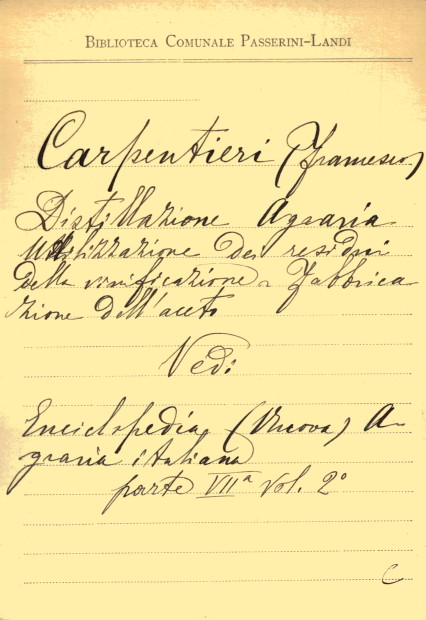 BIBLIOTECA COMUNALE PASSERINI-LANDI
Carpentieri (Francesco)
Distillazione Agraria
Utilizzazione dei residui
della vinificazione - Fabbrica
zione dell'aceto
Vedi
Enciclopedia (Nuova) A-
graria italiana
parte VIIª vol. 2º
C